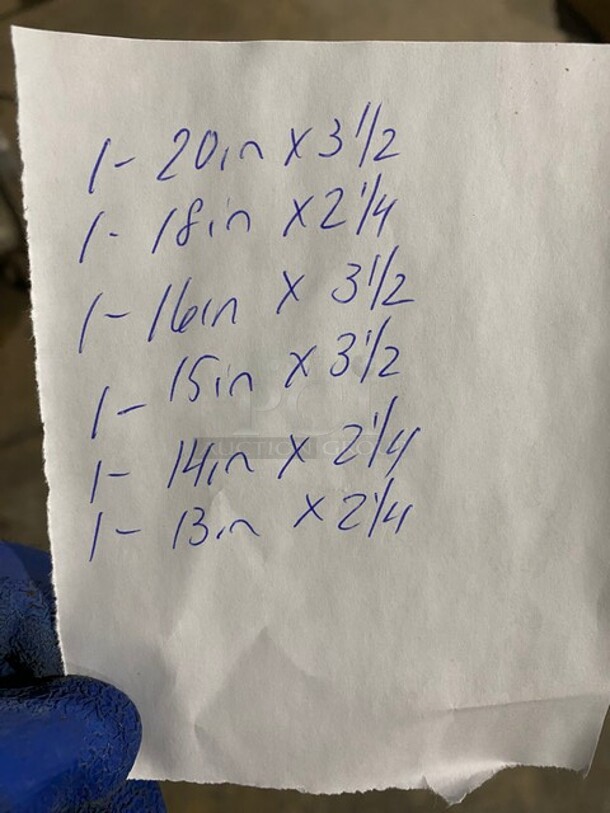 1- 20in x 3 1/2
1- 18in x 2 1/4
1- 16in x 3 1/2
1- 15in x 3 1/2
AUCTION GROUP
1- 14in x 2 1/4
1- 13in x 2 1/4